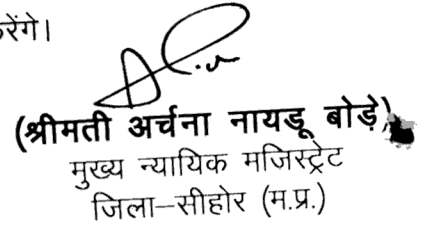 रेंगे।
(श्रीमती अर्चना नायडू बोड़े)
मुख्य न्यायिक मजिस्ट्रेट
जिला–सीहोर (म.प्र.)